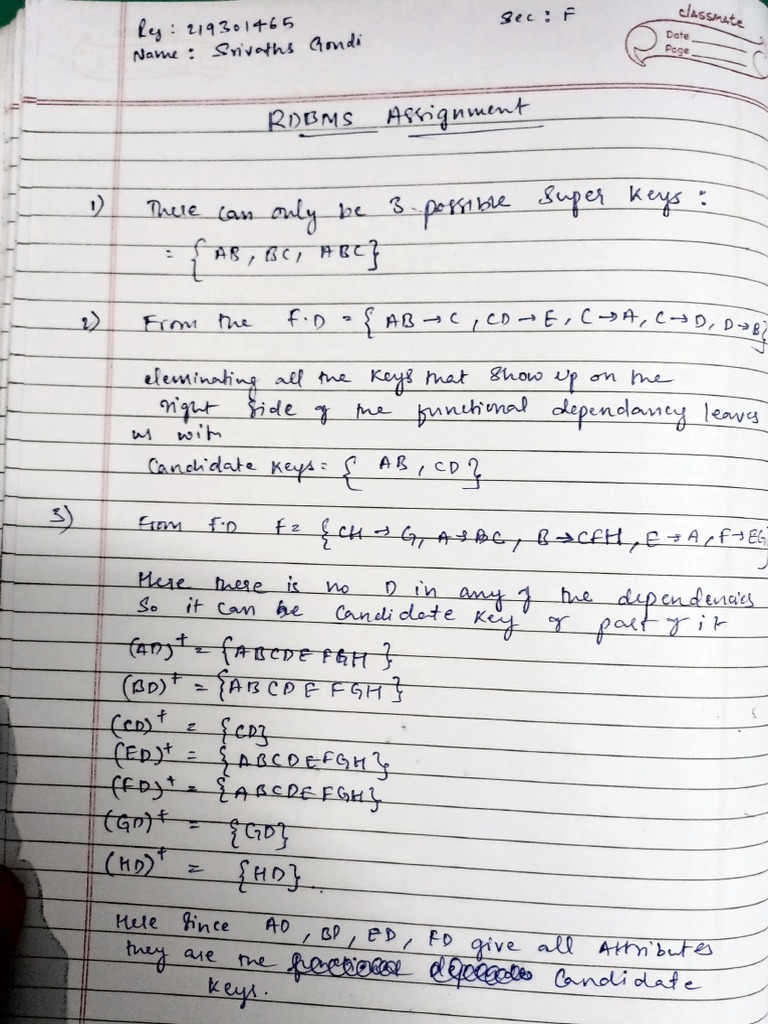 Reg : 219301465
Sec : F
Name : Srivaths Gondi
classmate
Date
Page
RDBMS Assignment
1) There can only be 3 possible Super Keys :
= { AB , BC , ABC }
2) From the F.D = { AB → C , CD → E , C → A , C → D , D → B }
eleminating all the keys that show up on the
right side of the functional dependancy leaves
us with
Candidate Keys = { AB , CD }
3) From F.D F = { CH → G , A → BC , B → CFH , E → A , F → EG }
Here there is no D in any of the dependencies
So it can be Candidate key or part of it
(AD)+ = { ABCDEFGH }
(BD)+ = { ABCDEFGH }
(CD)+ = { CD }
(ED)+ = { ABCDEFGH }
(FD)+ = { ABCDEFGH }
(GD)+ = { GD }
(HD)+ = { HD }
Here Since AD , BD , ED , FD give all Attributes
they are the Candidate
Keys.